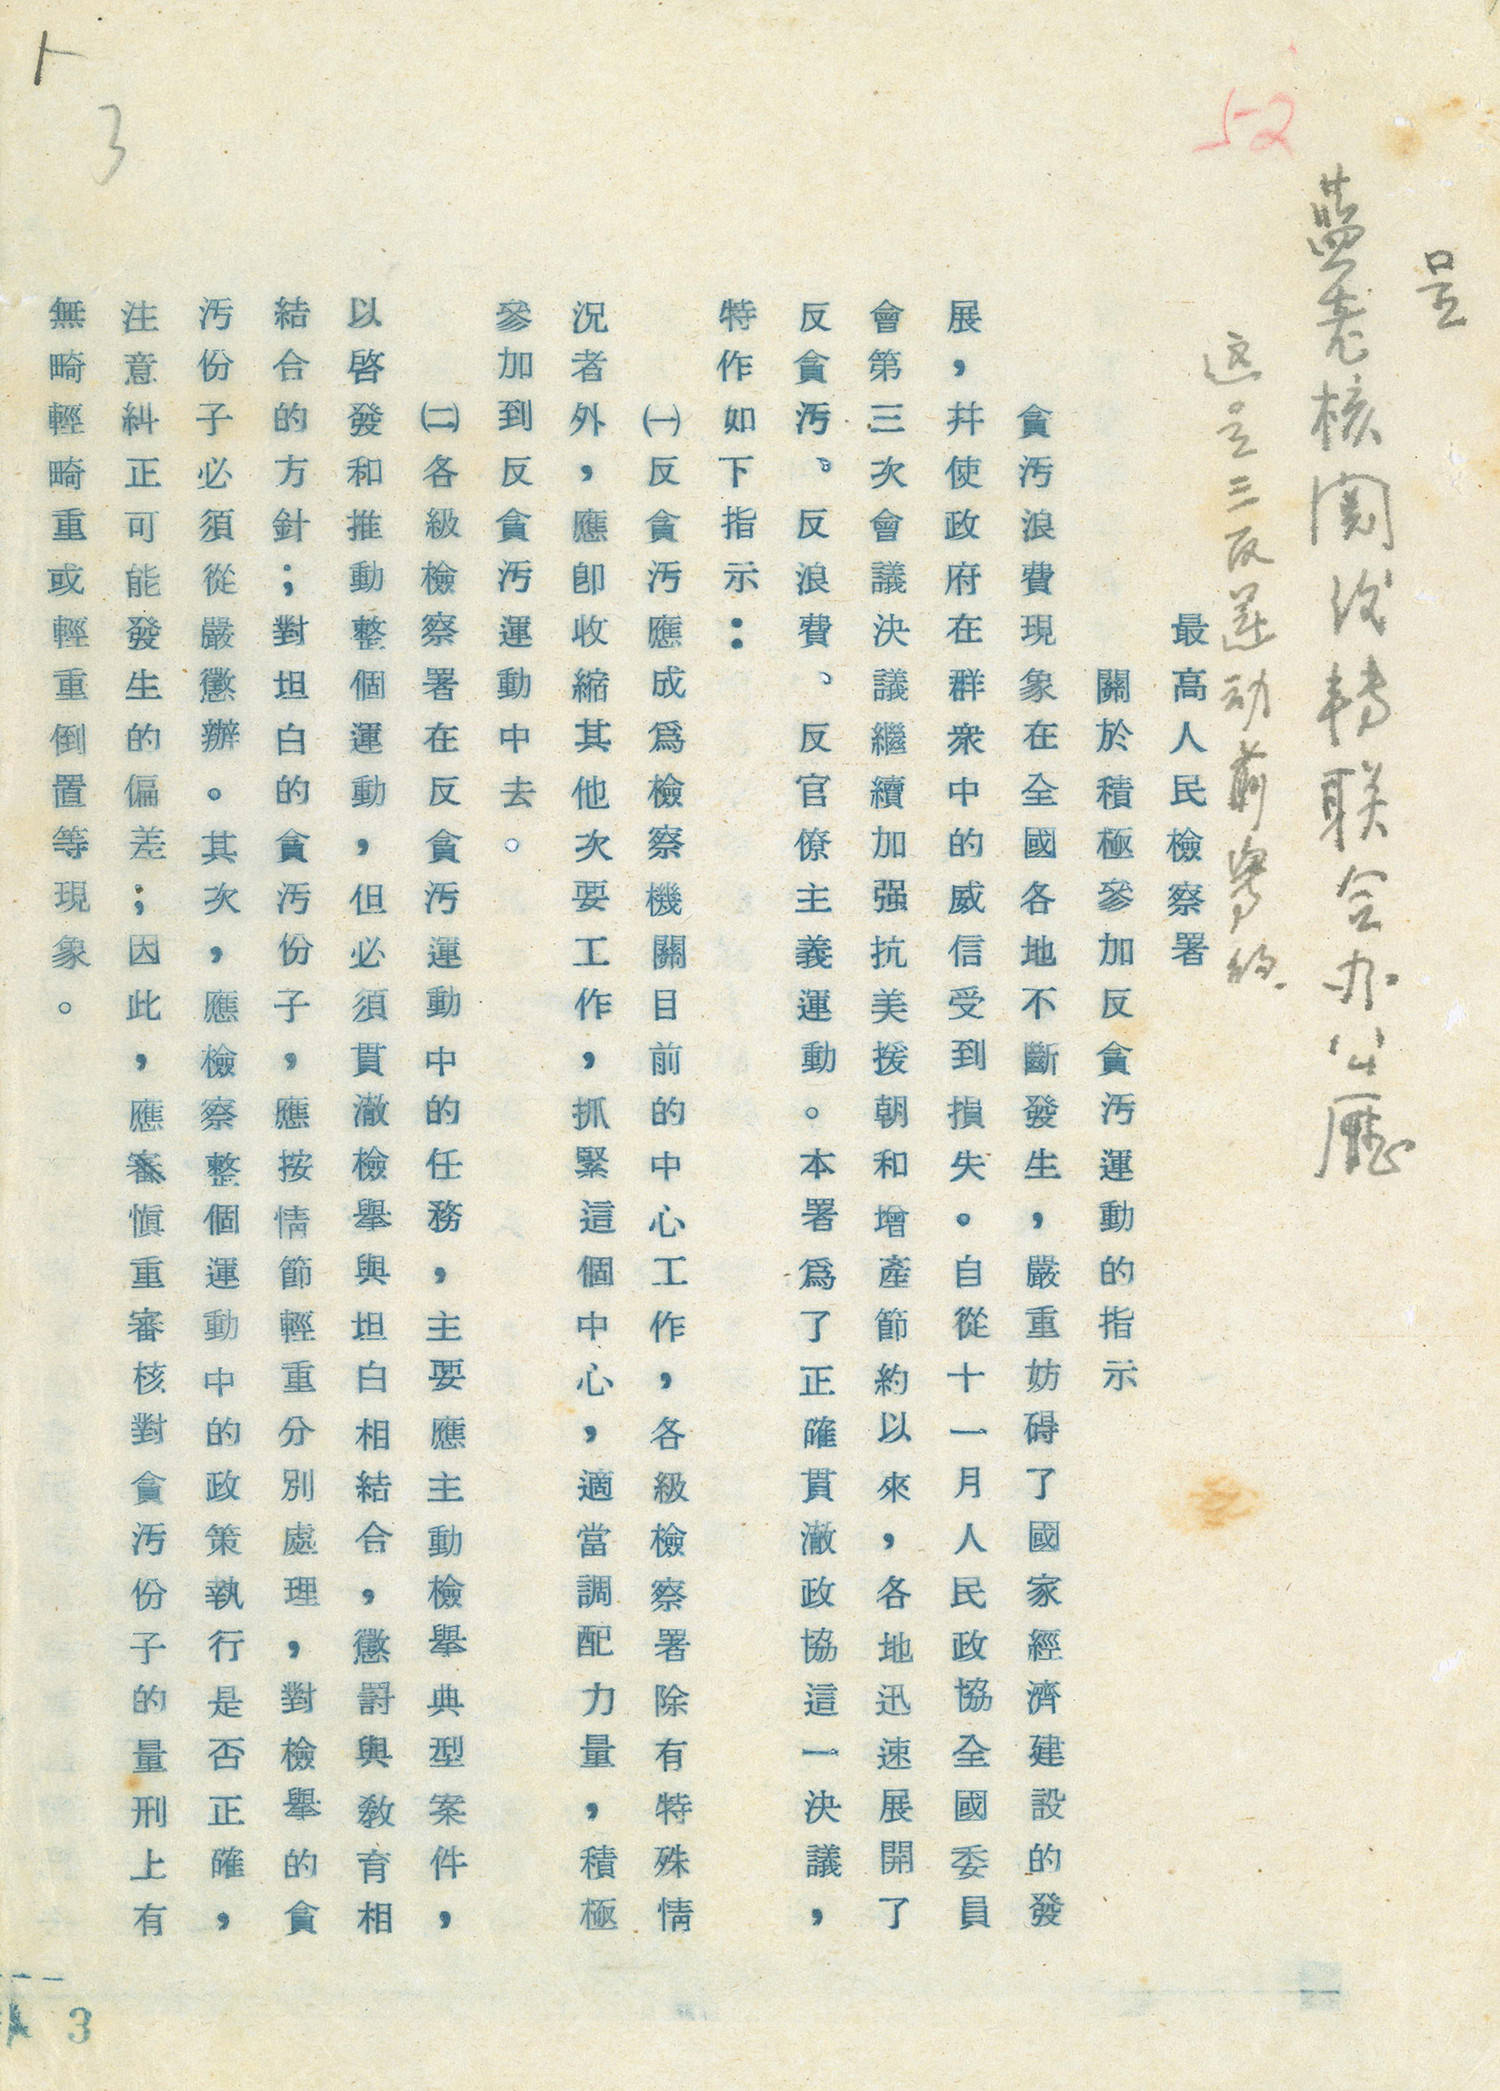 呈
蓝老核阅後转联合办公厅
这是三反运动前写的.
52
最高人民檢察署
關於積極參加反貪汚運動的指示
貪汚浪費現象在全國各地不斷發生，嚴重妨碍了國家經濟建設的發
展，幷使政府在群衆中的威信受到損失。自從十一月人民政協全國委員
會第三次會議決議繼續加强抗美援朝和增產節約以來，各地迅速展開了
反貪汚、反浪費、反官僚主義運動。本署爲了正確貫澈政協這一決議，
特作如下指示：
㈠反貪汚應成爲檢察機關目前的中心工作，各級檢察署除有特殊情
況者外，應卽收縮其他次要工作，抓緊這個中心，適當調配力量，積極
參加到反貪汚運動中去。
㈡各級檢察署在反貪汚運動中的任務，主要應主動檢舉典型案件，
以啓發和推動整個運動，但必須貫澈檢舉與坦白相結合，懲罸與敎育相
結合的方針；對坦白的貪汚份子，應按情節輕重分別處理，對檢舉的貪
汚份子必須從嚴懲辦。其次，應檢察整個運動中的政策執行是否正確，
注意糾正可能發生的偏差；因此，應審愼重審核對貪汚份子的量刑上有
無畸輕畸重或輕重倒置等現象。
3
3